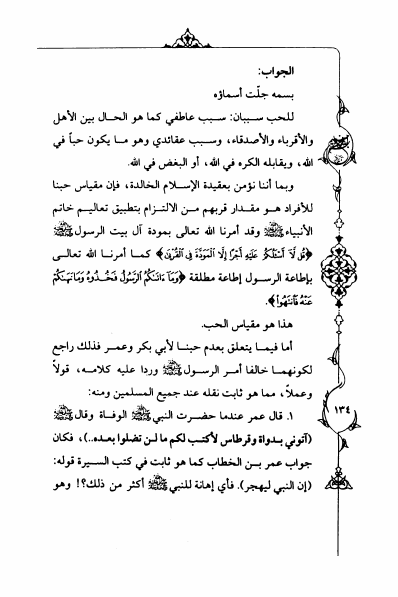 الجواب:
بسمه جلّت أسماؤه
للحب سببان: سبب عاطفي كما هو الحال بين الأهل
والأقرباء والأصدقاء، وسبب عقائدي وهو ما يكون حباً في
الله، ويقابله الكره في الله، أو البغض في الله.
وبما أننا نؤمن بعقيدة الإسلام الخالدة، فإن مقياس حبنا
للأفراد هو مقدار قربهم من الالتزام بتطبيق تعاليم خاتم
الأنبياء ﷺ وقد أمرنا الله تعالى بمودة آل بيت الرسول ﷺ
﴿قُل لَّا أَسْئَلُكُمْ عَلَيْهِ أَجْرًا إِلَّا الْمَوَدَّةَ فِي الْقُرْبَىٰ﴾ كما أمرنا الله تعالى
بإطاعة الرسول إطاعة مطلقة ﴿وَمَا آتَاكُمُ الرَّسُولُ فَخُذُوهُ وَمَا نَهَاكُمْ
عَنْهُ فَانتَهُوا﴾.
هذا هو مقياس الحب.
أما فيما يتعلق بعدم حبنا لأبي بكر وعمر فذلك راجع
لكونهما خالفا أمر الرسول ﷺ وردا عليه كلامه، قولاً
وعملاً، مما هو ثابت نقله عند جميع المسلمين ومنه:
١. قال عمر عندما حضرت النبي ﷺ الوفاة وقال ﷺ
(آتوني بدواة وقرطاس لأكتب لكم ما لن تضلوا بعده..)، فكان
جواب عمر بن الخطاب كما هو ثابت في كتب السيرة قوله:
(إن النبي ليهجر). فأي إهانة للنبي ﷺ أكثر من ذلك؟! وهو
١٣٤